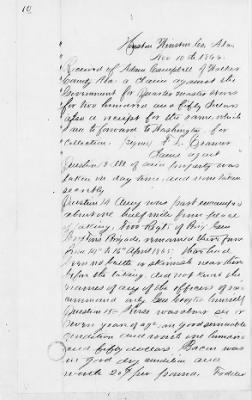 10
Houston Winston Co, Ala
Nov 10th 186
Received of Adam Campbell of Walker
County Ala a claim against the
Government for Quarter master stores
for two hundred and fifty Dollars
also a receipt for the same which
I am to forward to Washington for
collection. Signed F. L. Cramer
Claim agent
Question 13 All of my property was
taken in day time and none taken
secretly
Question 14 Army was part encamped
about one half mile from place
of taking, two Regts of Brig Gen
Croxton's Brigade, remained there from
from 14th to 15th April 1865. There had
been no battle or skirmish near there
before the taking, did not know the
names of any of the officers in
command only Gen Croxton himself
Question 15 Horse was about six or
seven years of age, in good
condition and worth one hundred
and fifty dollars. Bacon was
in good dry condition and
worth 20 cts per pound. Fodder